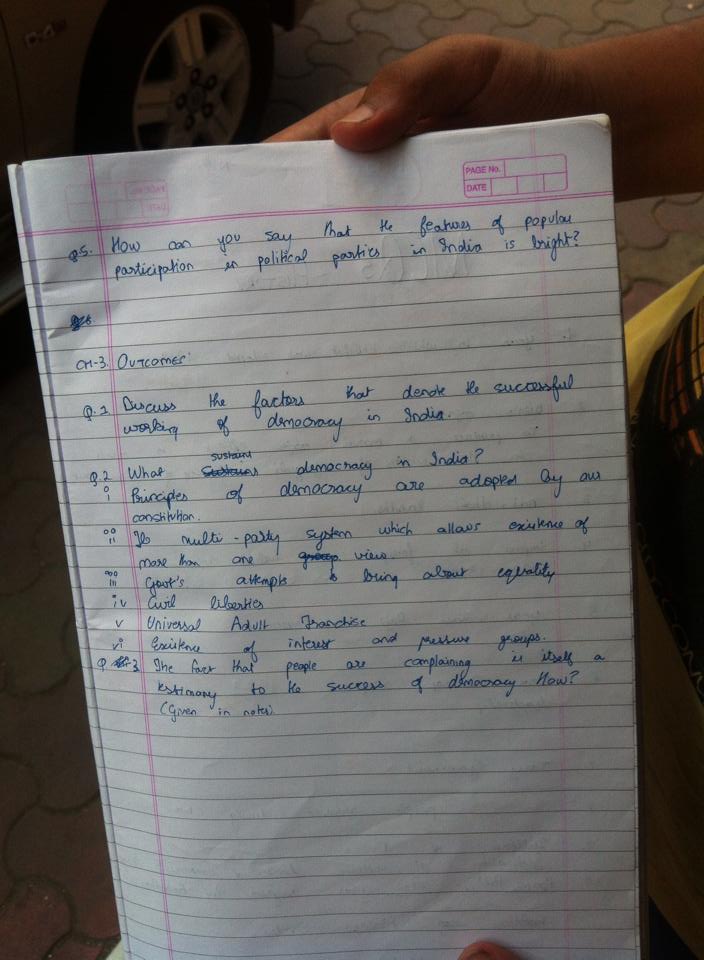 PAGE No.
DATE
Q.5. How can you say that the features of popular
participation in political parties in India is bright?
CH-3. OUTCOMES
Q.1 Discuss the factors that denote the successful
working of democracy in India.
Q.2 What sustains democracy in India?
i Principles of democracy are adopted by our
constitution.
ii Its multi-party system which allows existence of
more than one view.
iii Govt's attempts to bring about equality
iv Civil liberties
v Universal Adult Franchise
vi Existence of interest and pressure groups.
Q 3 The fact that people are complaining is itself a
testimony to the success of democracy How?
(Given in notes)